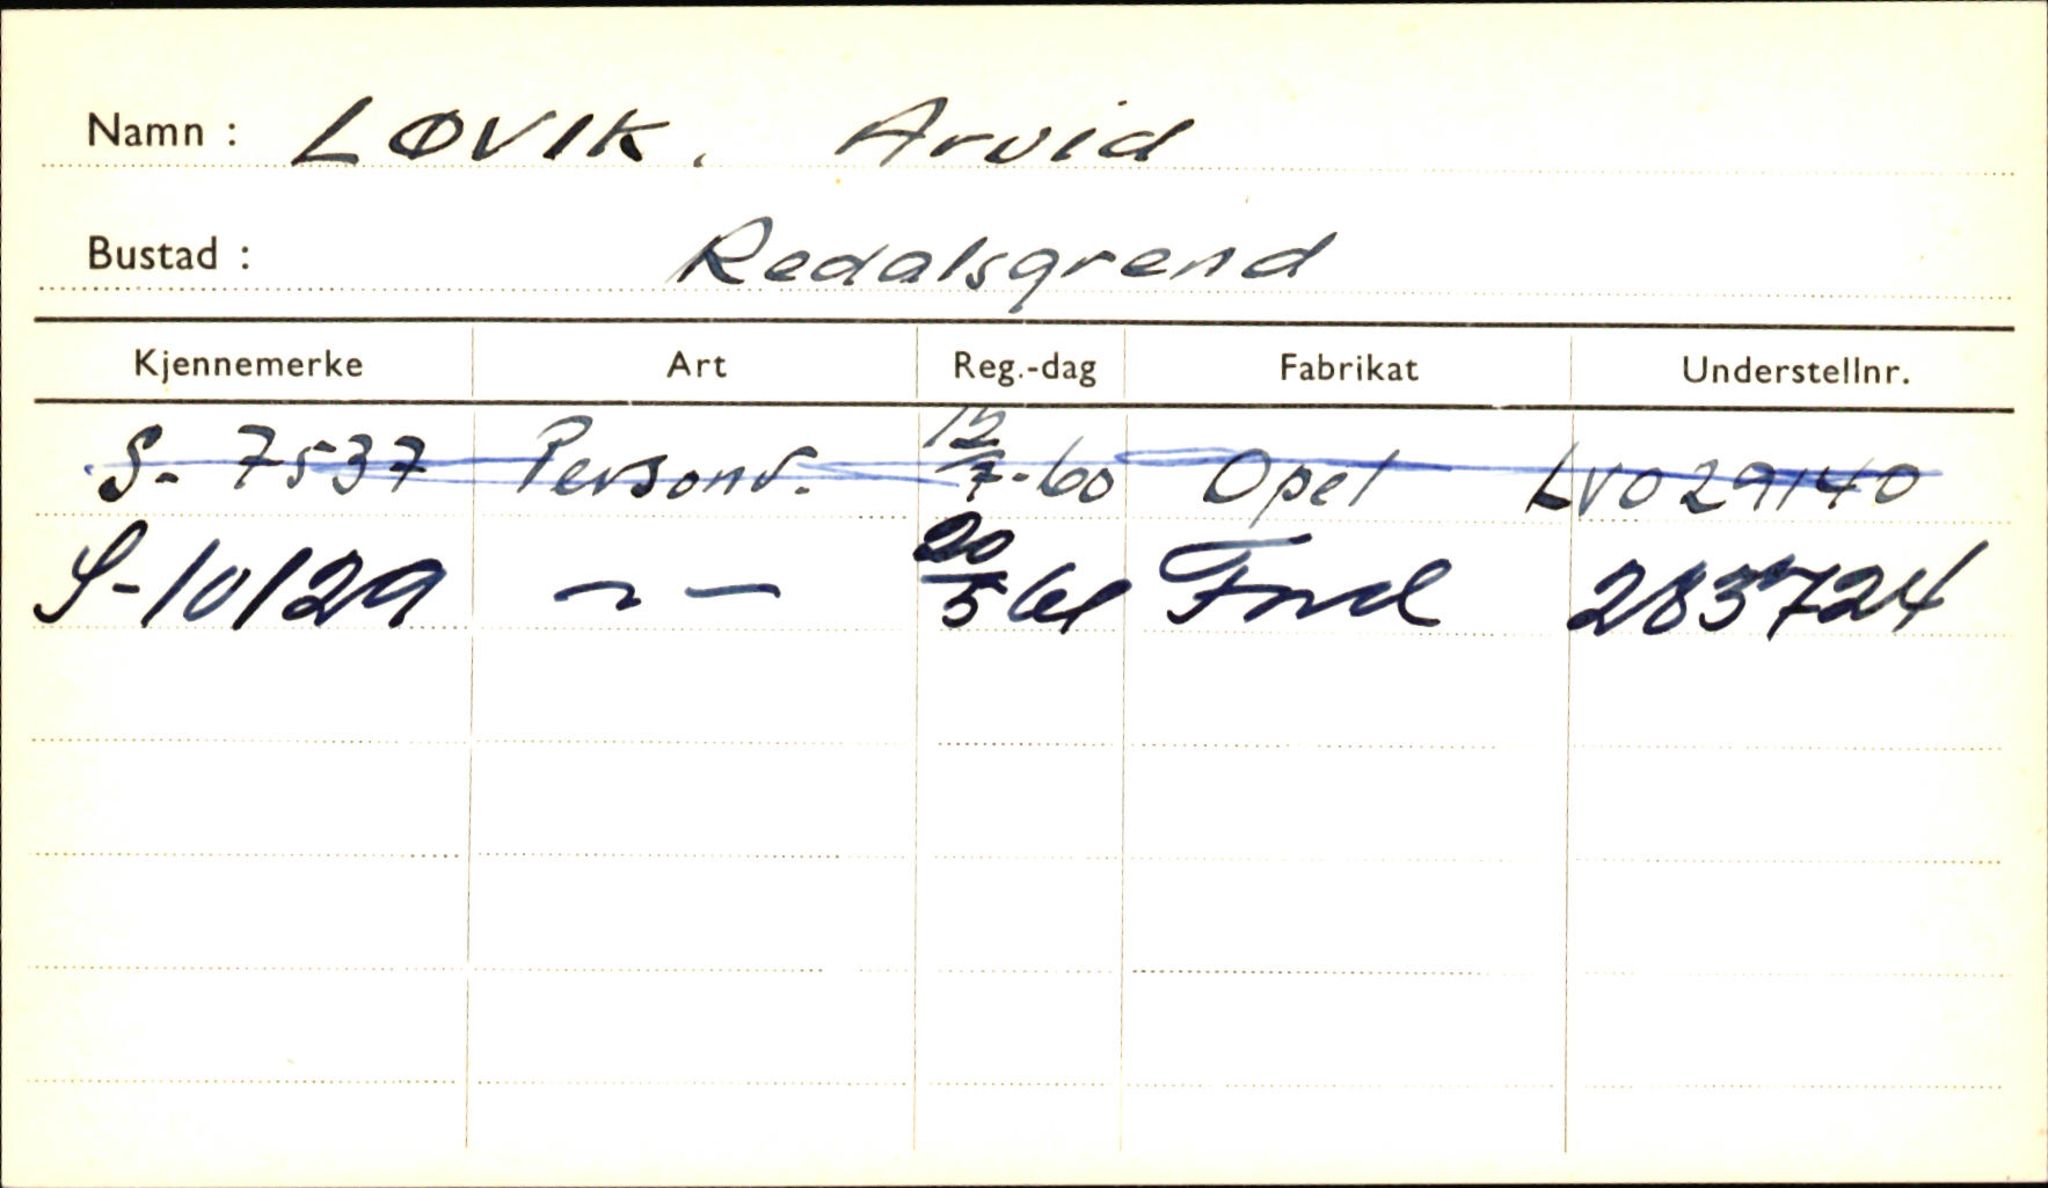 Namn : LØVIK, Arvid
Bustad : Redalsgrend
Kjennemerke Art Reg.-dag Fabrikat Understellnr.
S- 7537 Personv. 12/7-60 Opel LVO29140
S-10129 ~ — 20/5 61 Ford 283724